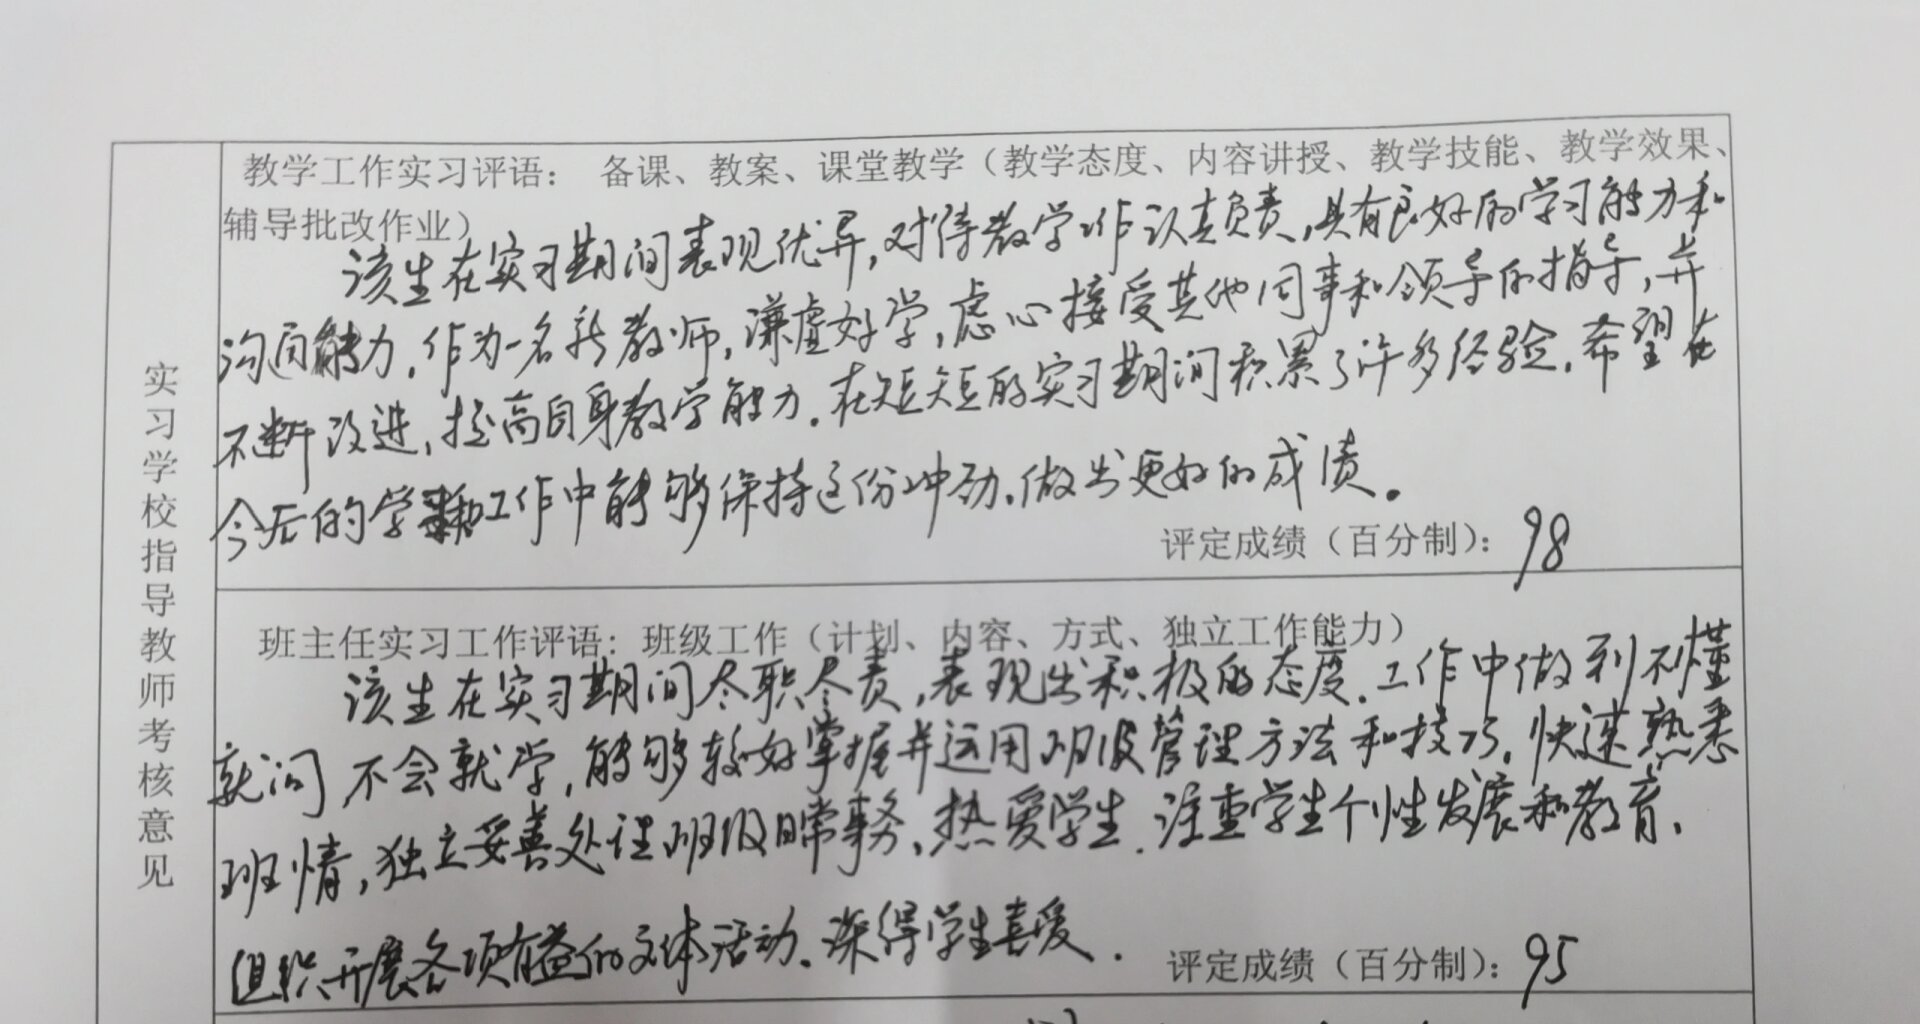 实习学校指导教师考核意见
教学工作实习评语： 备课、教案、课堂教学（教学态度、内容讲授、教学技能、教学效果、
辅导批改作业）
该生在实习期间表现优异，对待教学工作认真负责，具有良好的学习能力和
沟通能力，作为一名新教师，谦虚好学，虑心接受其他同事和领导的指导，并
不断改进，提高自身教学能力。在短短的实习期间积累了许多经验。希望在
今后的学习和工作中能够保持这份冲劲，做出更好的成绩。
评定成绩（百分制）： 98
班主任实习工作评语： 班级工作（计划、内容、方式、独立工作能力）
该生在实习期间尽职尽责，表现出积极的态度。工作中做到不懂
就问 不会就学，能够较好掌握并运用班级管理方法和技巧，快速熟悉
班情，独立妥善处理班级日常事务，热爱学生，注重学生个性发展和教育，
组织开展各项有益的文体活动，深得学生喜爱。
评定成绩（百分制）： 95